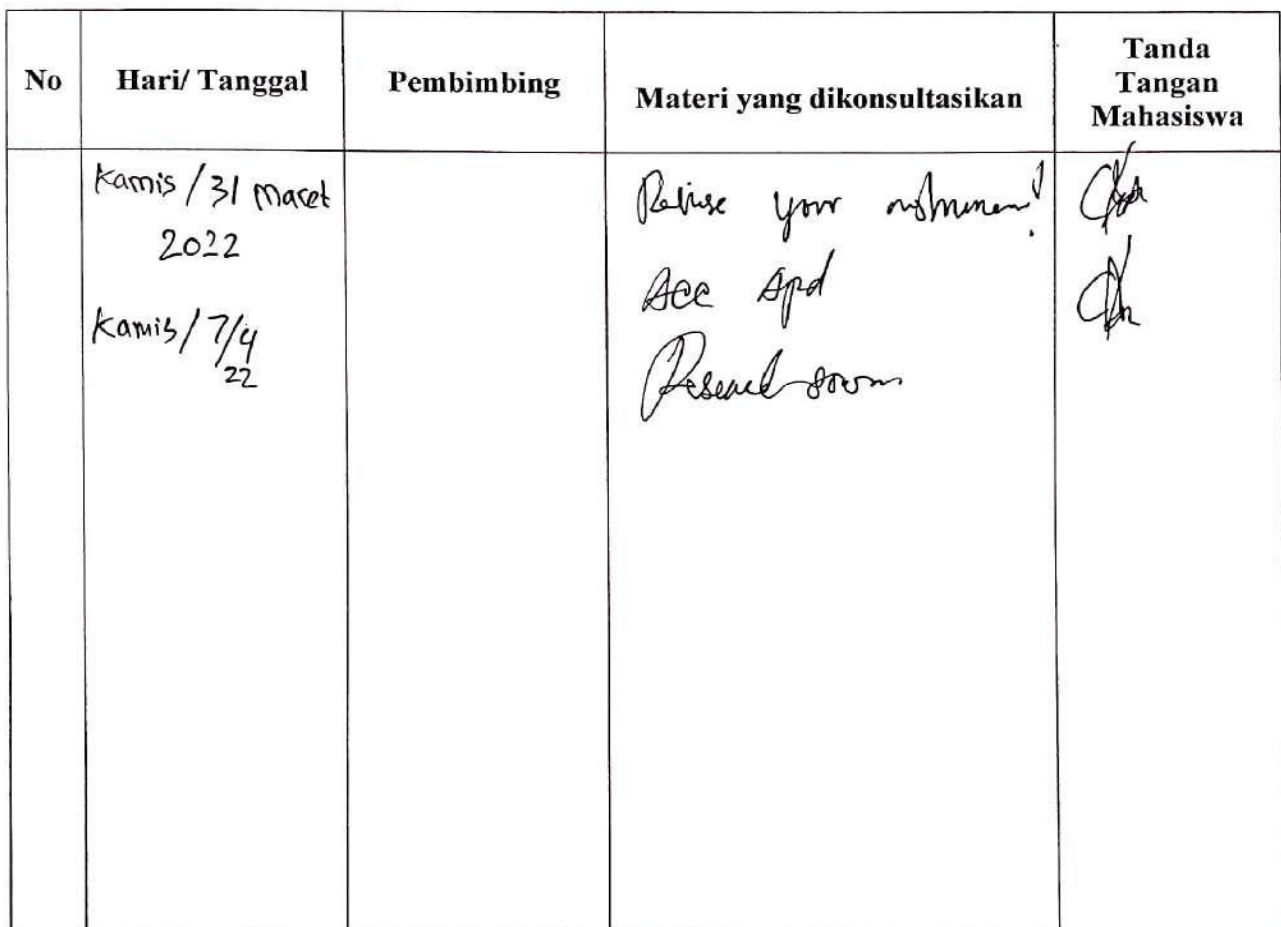 No Hari/ Tanggal Pembimbing Materi yang dikonsultasikan Tanda Tangan Mahasiswa
Kamis / 31 Maret Revise your instrument!
2022
Acc Apd
Kamis / 7/4
22
Research